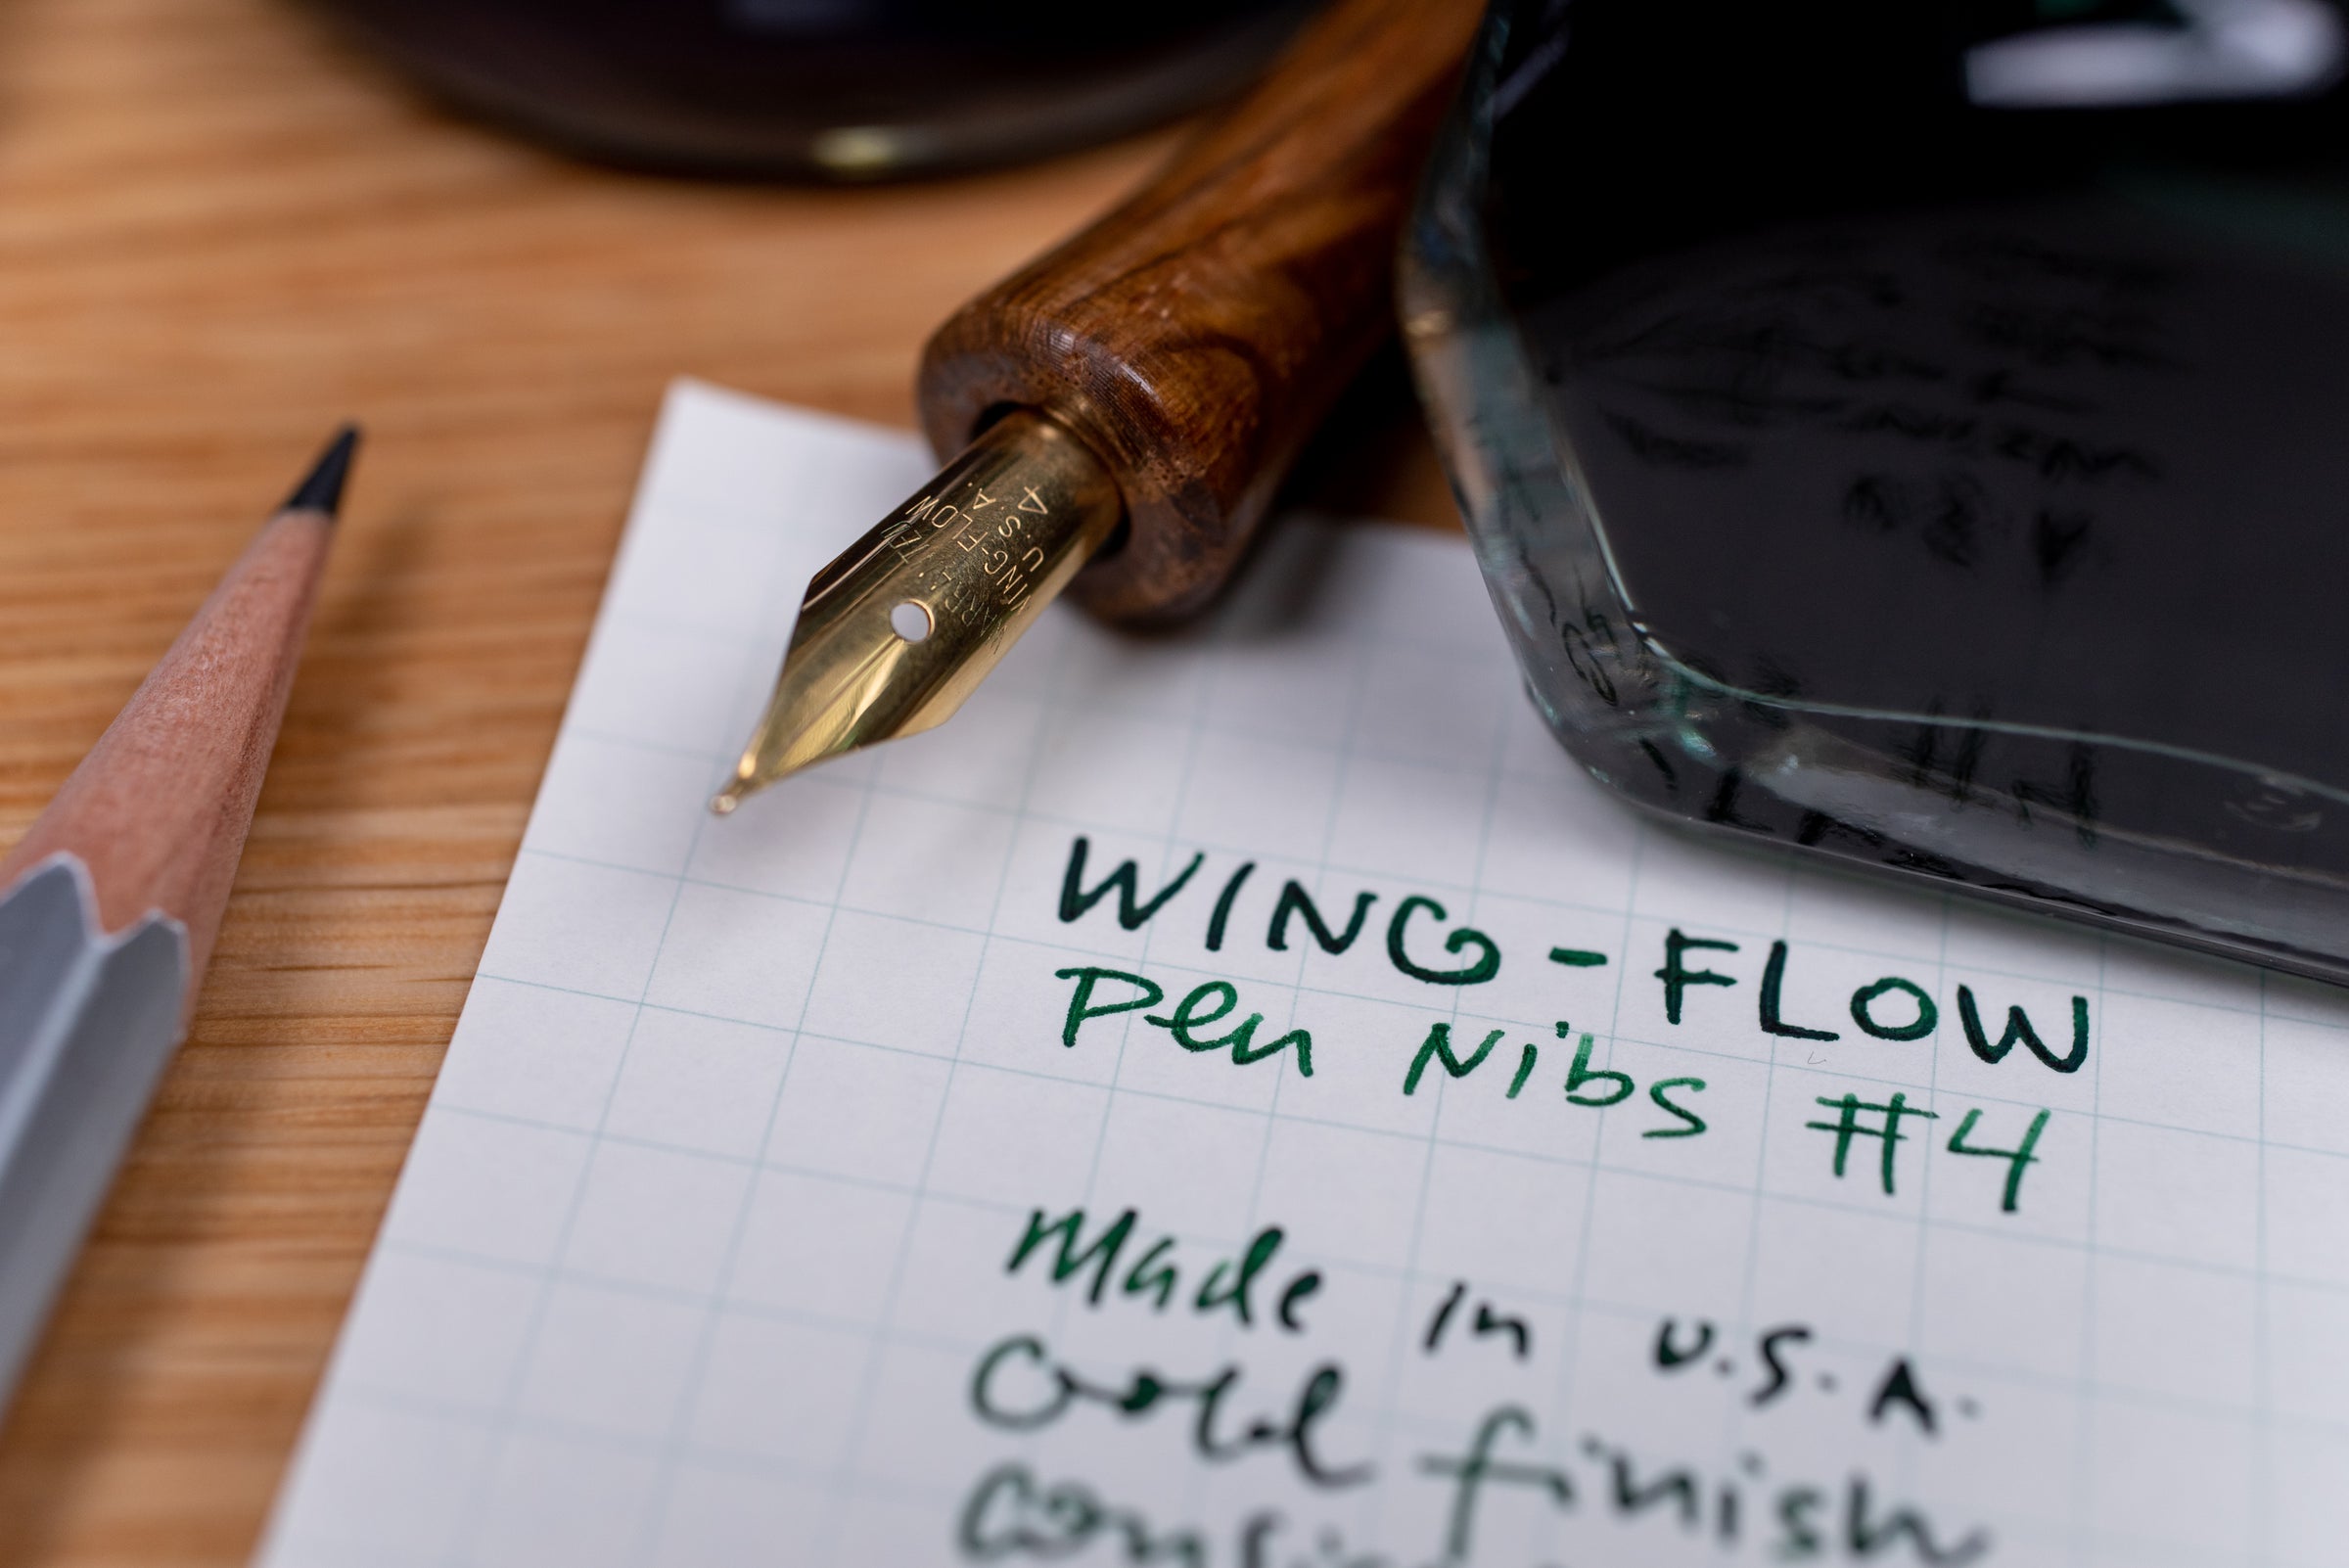 WARRANTED
WING-FLOW
U.S.A.
4
WING-FLOW
Pen Nibs #4
Made in U.S.A.
Gold finish